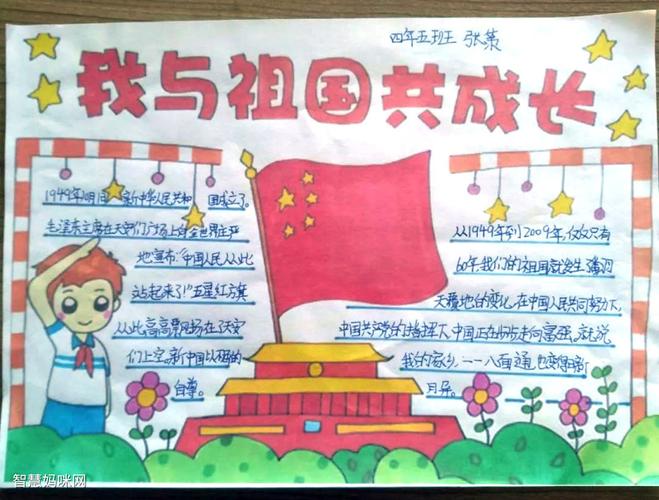 四年五班 张策
我与祖国共成长
1949年10月1日,新中华人民共和国成立了。
毛泽东主席在天安门广场上向全世界庄严
地宣布:“中国人民从此
站起来了!”五星红旗
从此高高飘扬在了天安
们上空,新中国以
自尊。
从1949年到2009年,仅仅只有
60年,我们的祖国就发生了翻
天覆地的变化,在中国人民共同努力下,
中国共产党的指挥下,中国正在步步走向富强,就说
我的家乡一一八面通,也变得日新
月异。
智慧妈咪网